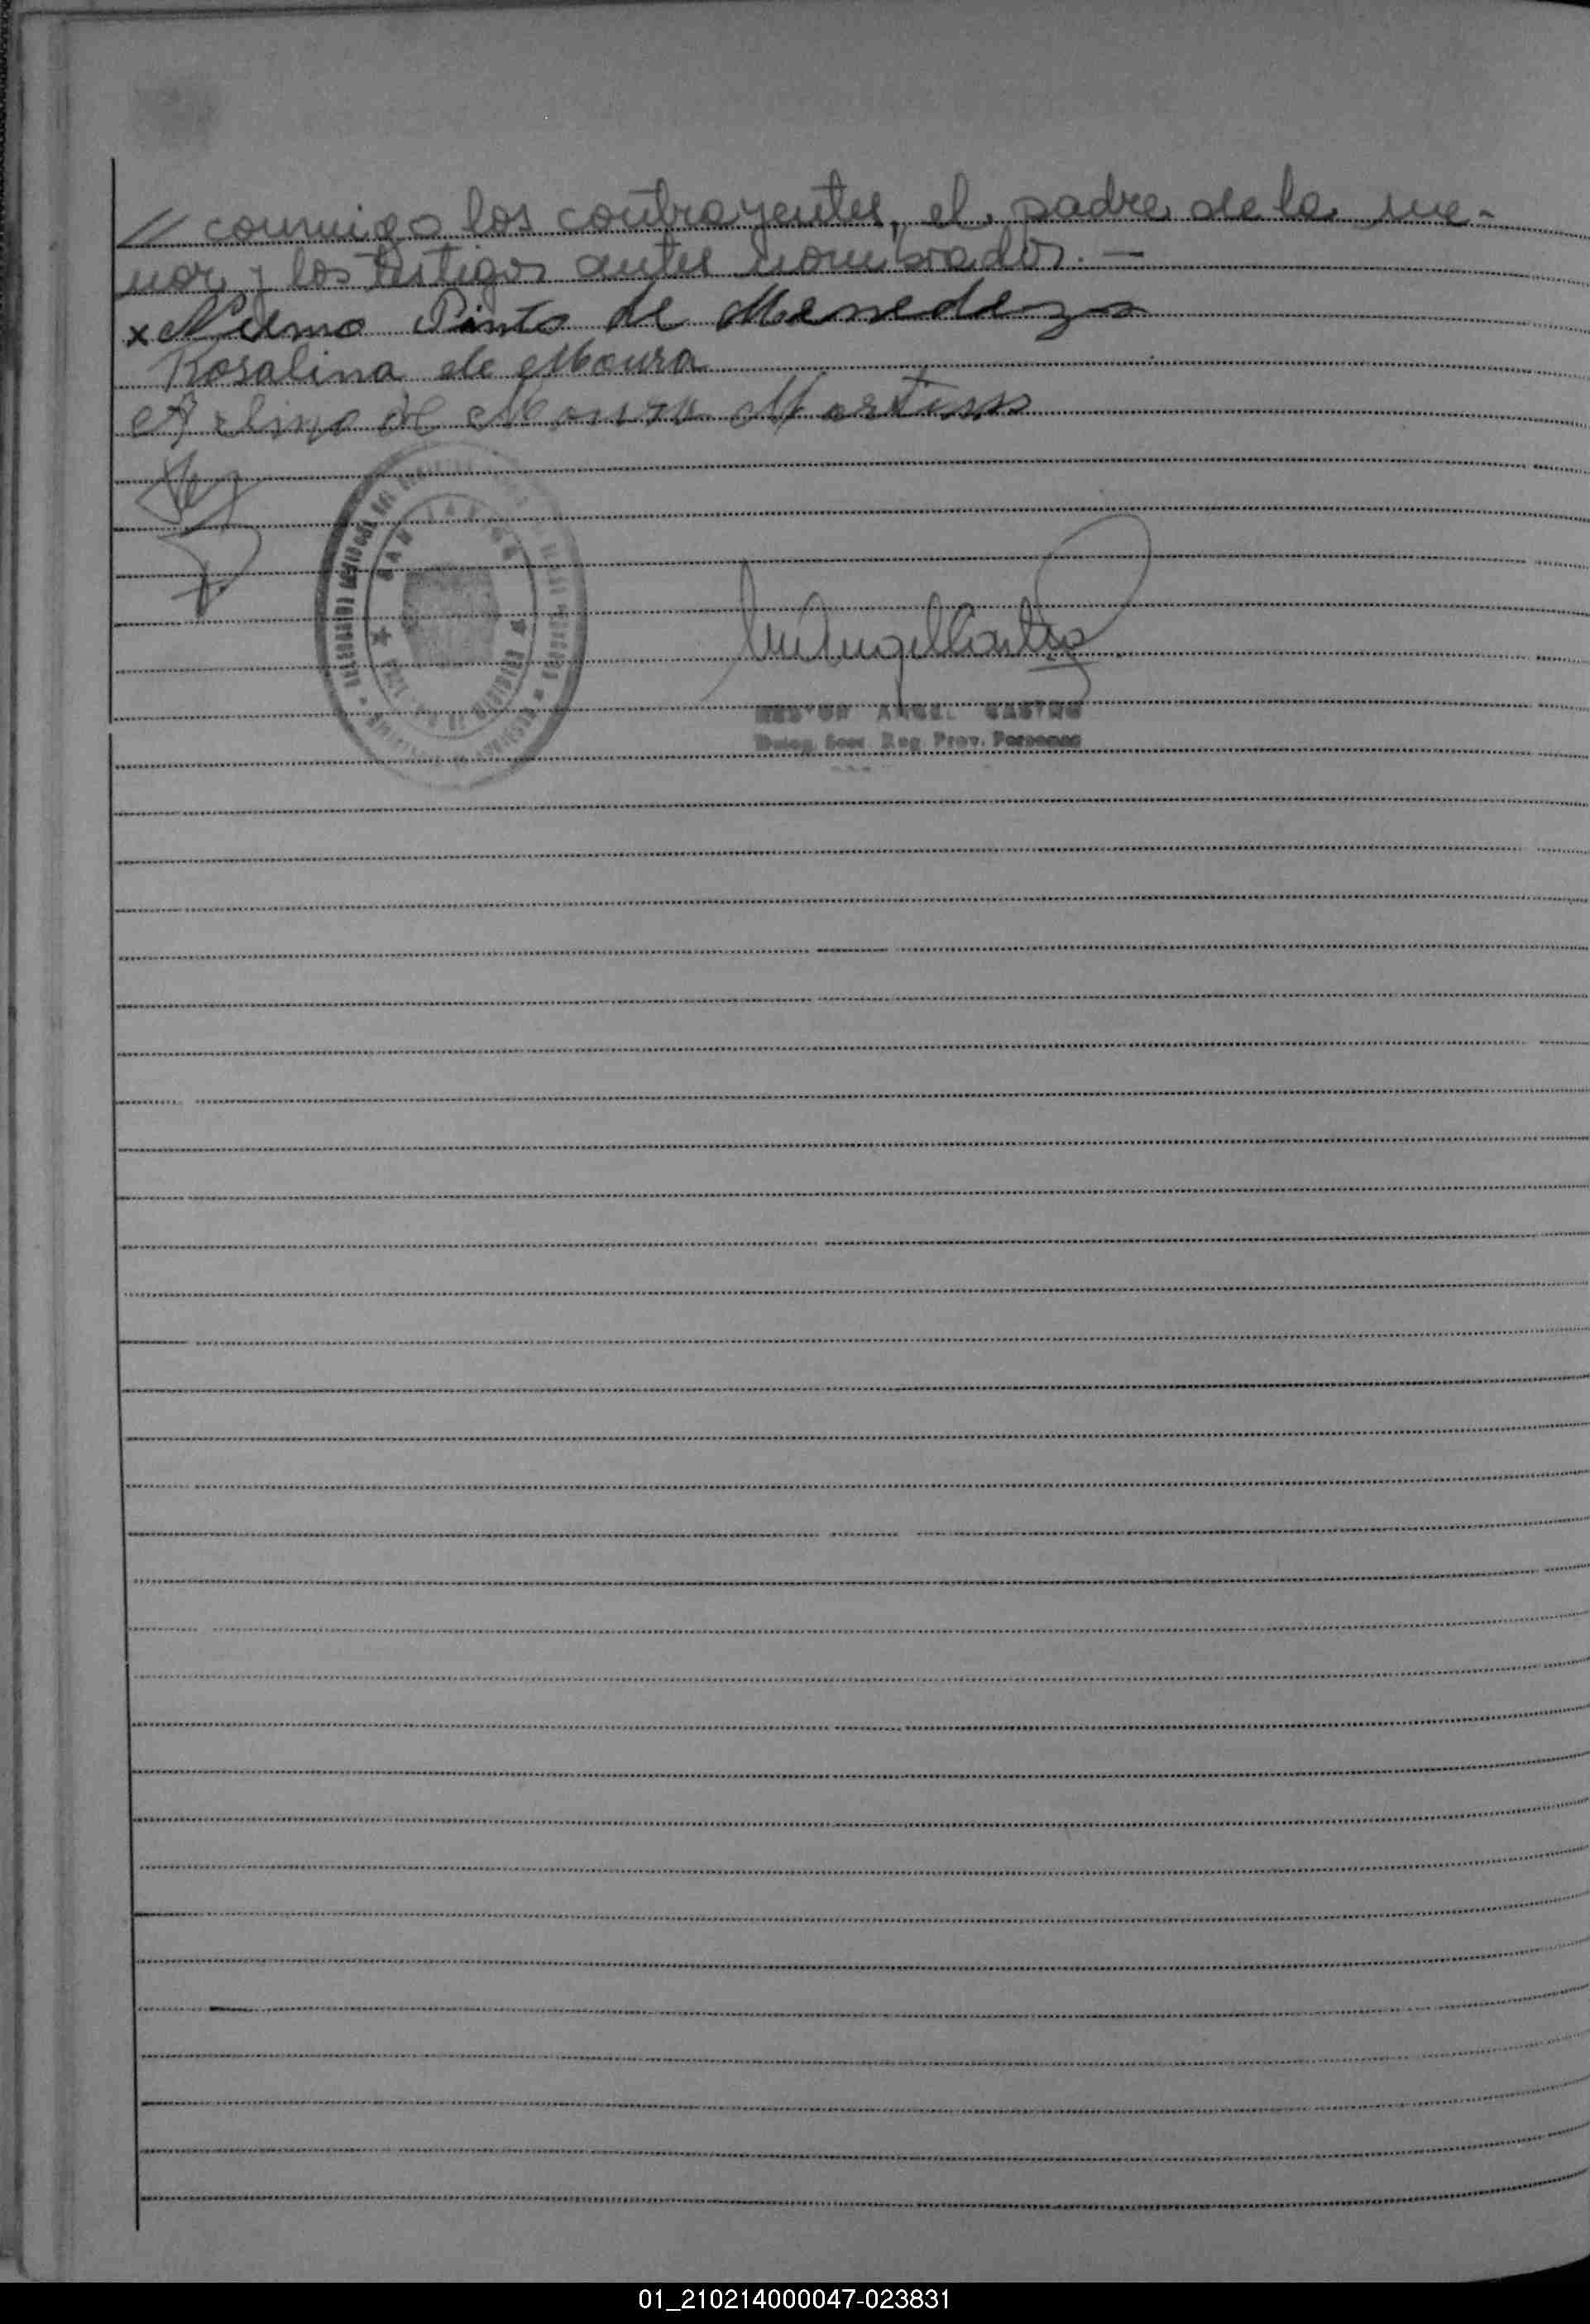 // conmigo los contrayentes, el padre de la me-
nor y los testigos antes nombrados. —
x Nelmo Pinto de Menedezes
Rosalina de Moura
Arlino de Moura Martins
NESTOR ANGEL CASTRO
Deleg. Secc. Reg. Prov. Personas
01_210214000047-023831